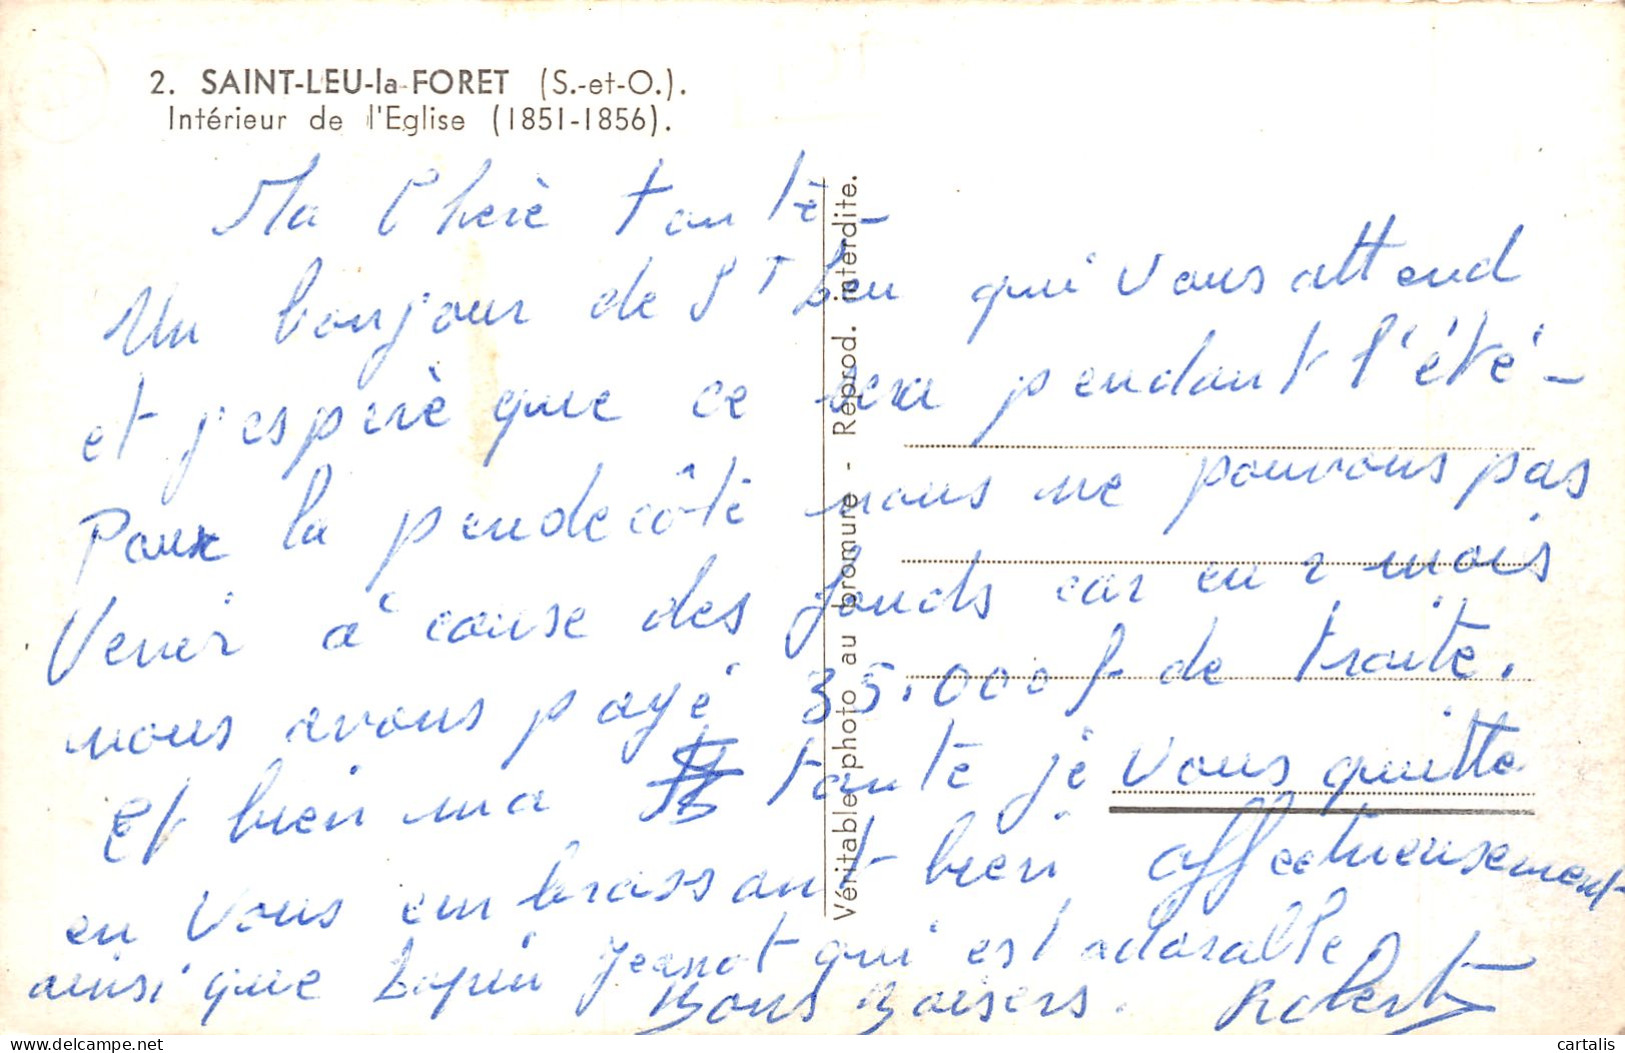 2. SAINT-LEU-la-FORET (S.-et-O.).
Intérieur de l'Eglise (1851-1856).
Ma Chère tante -
Un bonjour de St Leu qui vous attend
et j'espère que ce sera pendant l'été -
Pour la pendecôte nous ne pouvons pas
Venir à cause des fonds car en 2 mois
nous avons payé 35.000 f de traite.
Et bien ma tante je vous quitte
en vous embrassant bien affectueusement
ainsi que Lapin Jeannot qui est adorable
Bons Baisers. Robert
Véritable photo au bromure - Reprod. interdite.
cartalis
delcampe.net